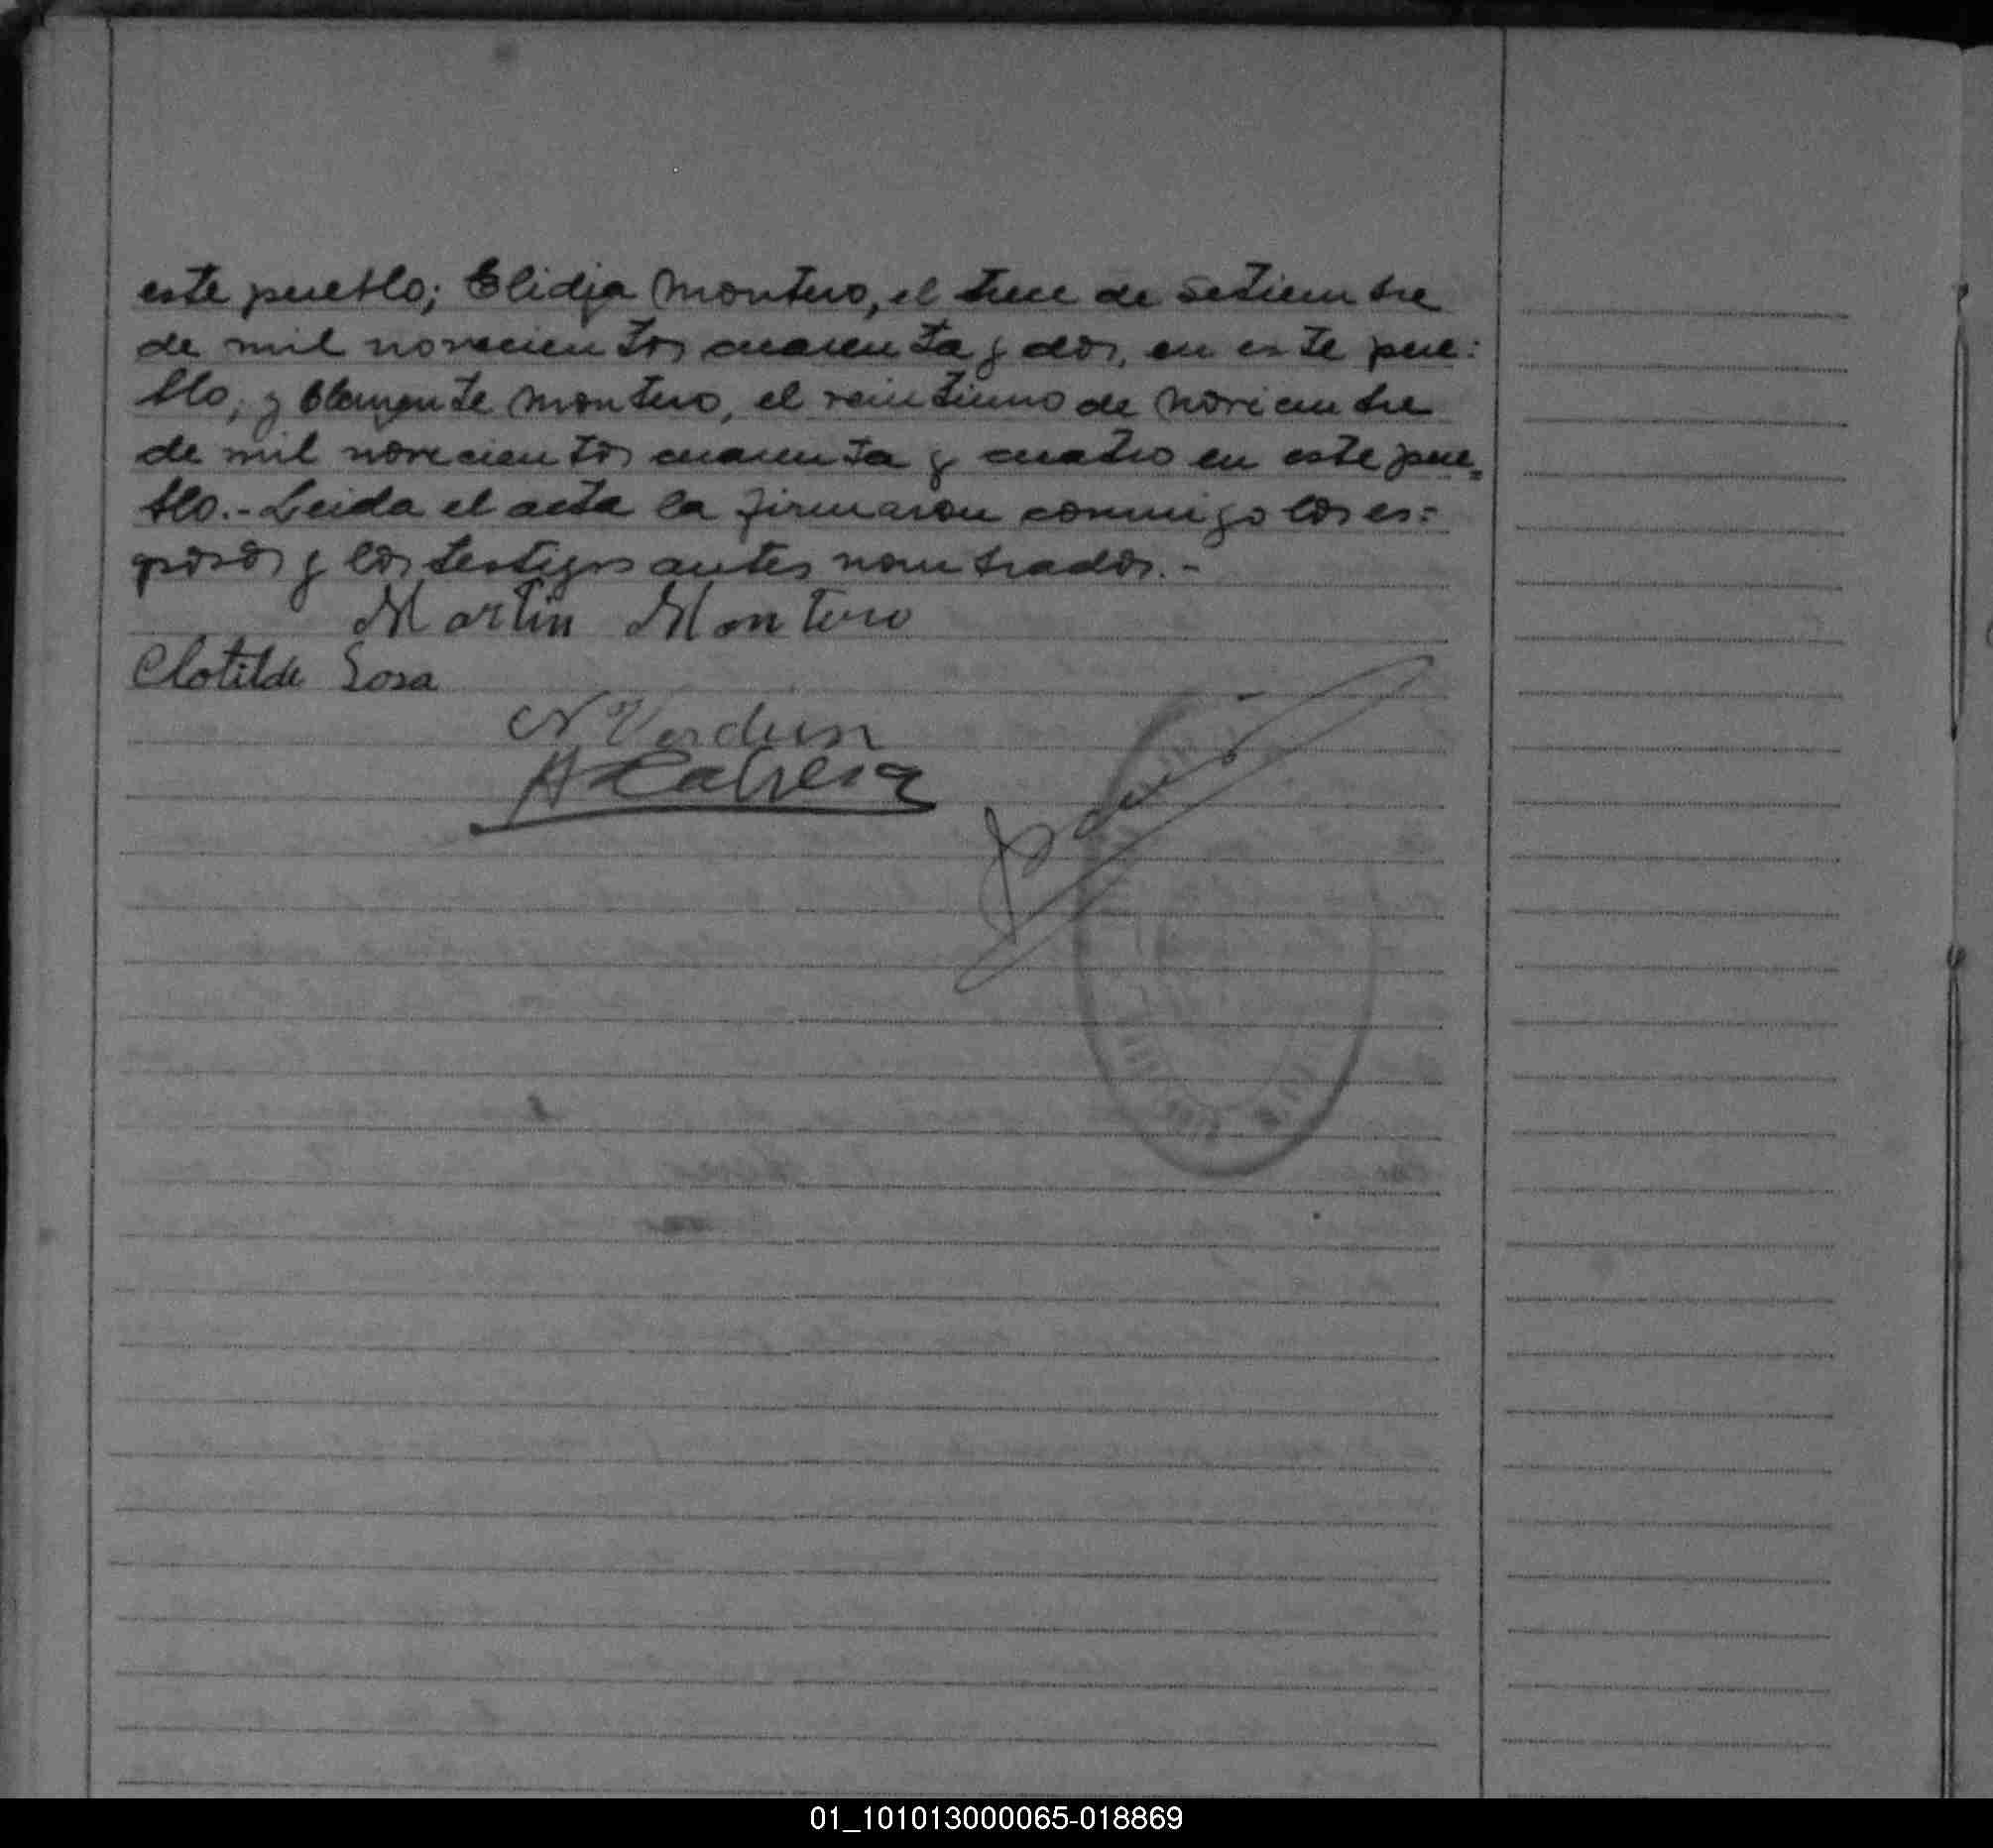 este pueblo; Elidja Montero, el trece de Setiembre
de mil novecientos cuarenta y dos, en este pue=
blo, y Clemente Montero, el veintiuno de Noviembre
de mil novecientos cuarenta y cuatro en este pue=
blo.- Leida el acta la firmaron conmigo los es=
posos y los testigos antes nombrados.-
Martin Montero
Clotilde Sosa
N Verdun
A Cabrera
01_101013000065-018869